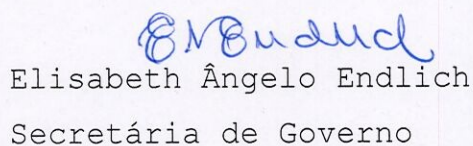 Elisabeth Ângelo Endlich
Secretária de Governo